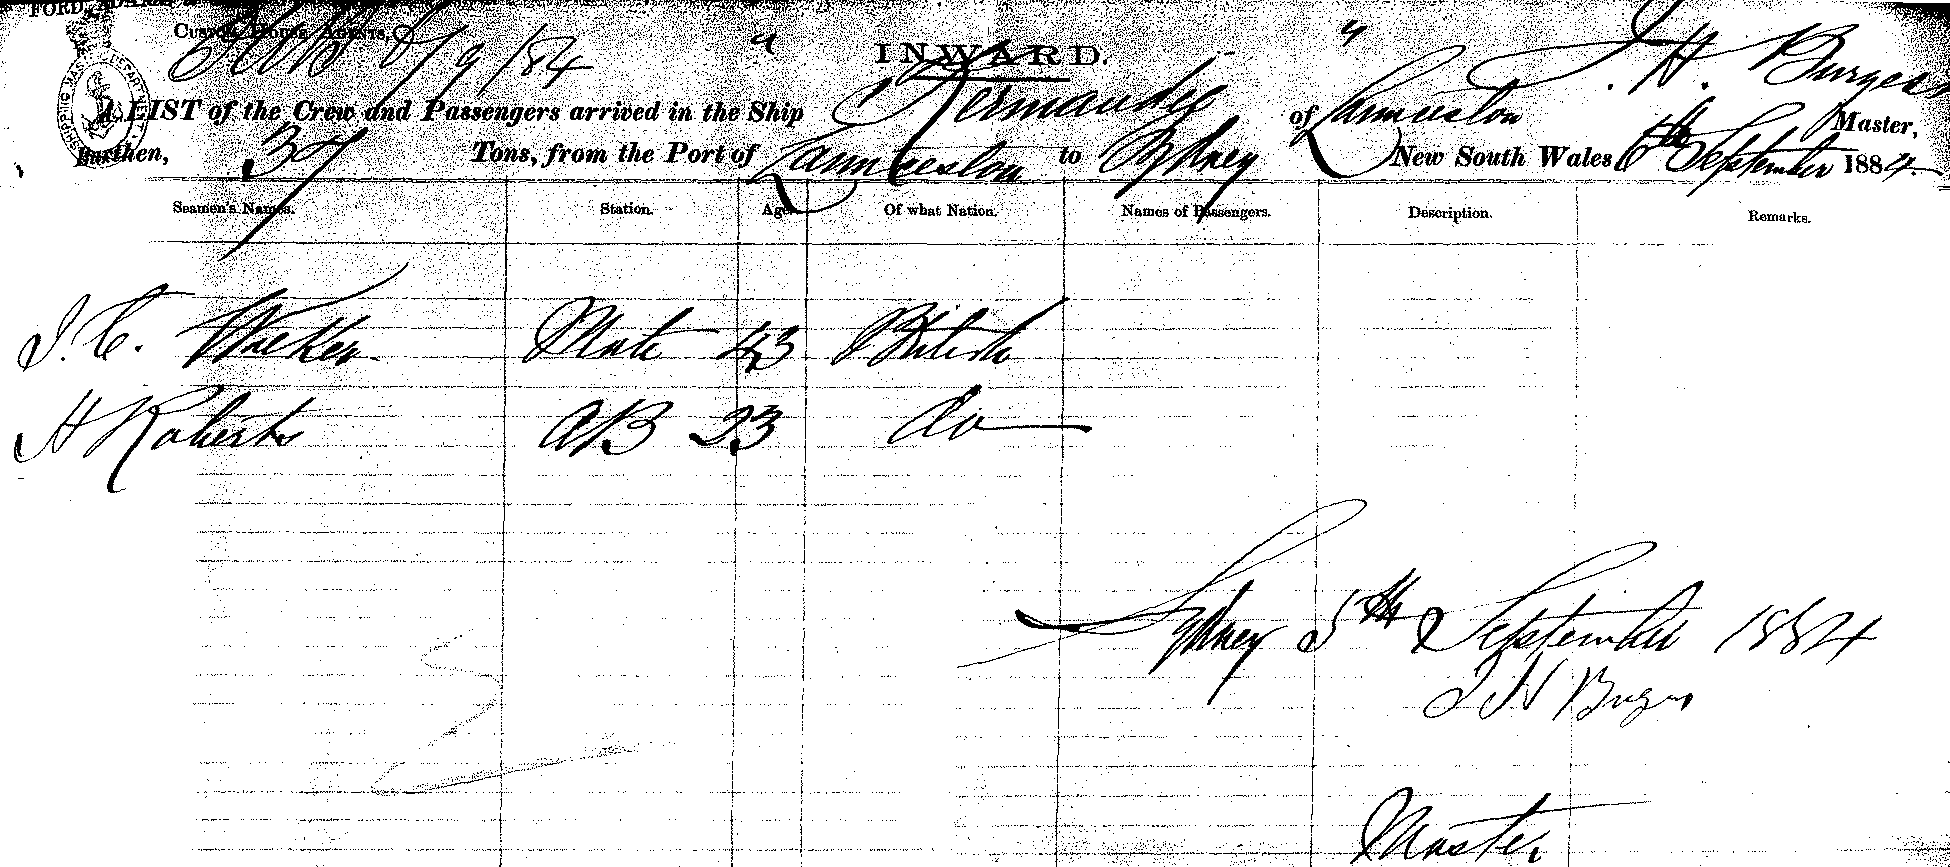 FORD, ADAMS &
Custom House Agents,
SHIPPING MASTER DEPARTMENT
8/9/84
INWARD.
A LIST of the Crew and Passengers arrived in the Ship " Hermandes " of Launceston T. H. Burgess Master,
Burthen, 37 Tons, from the Port of Launceston to Sydney New South Wales 6th September 1884
Seamen's Names. Station. Age. Of what Nation. Names of Passengers. Description. Remarks.
J. C. Walker Mate 43 British
H Roberts AB 23 do
Sydney 5th September 1884
T H Burgess
Master